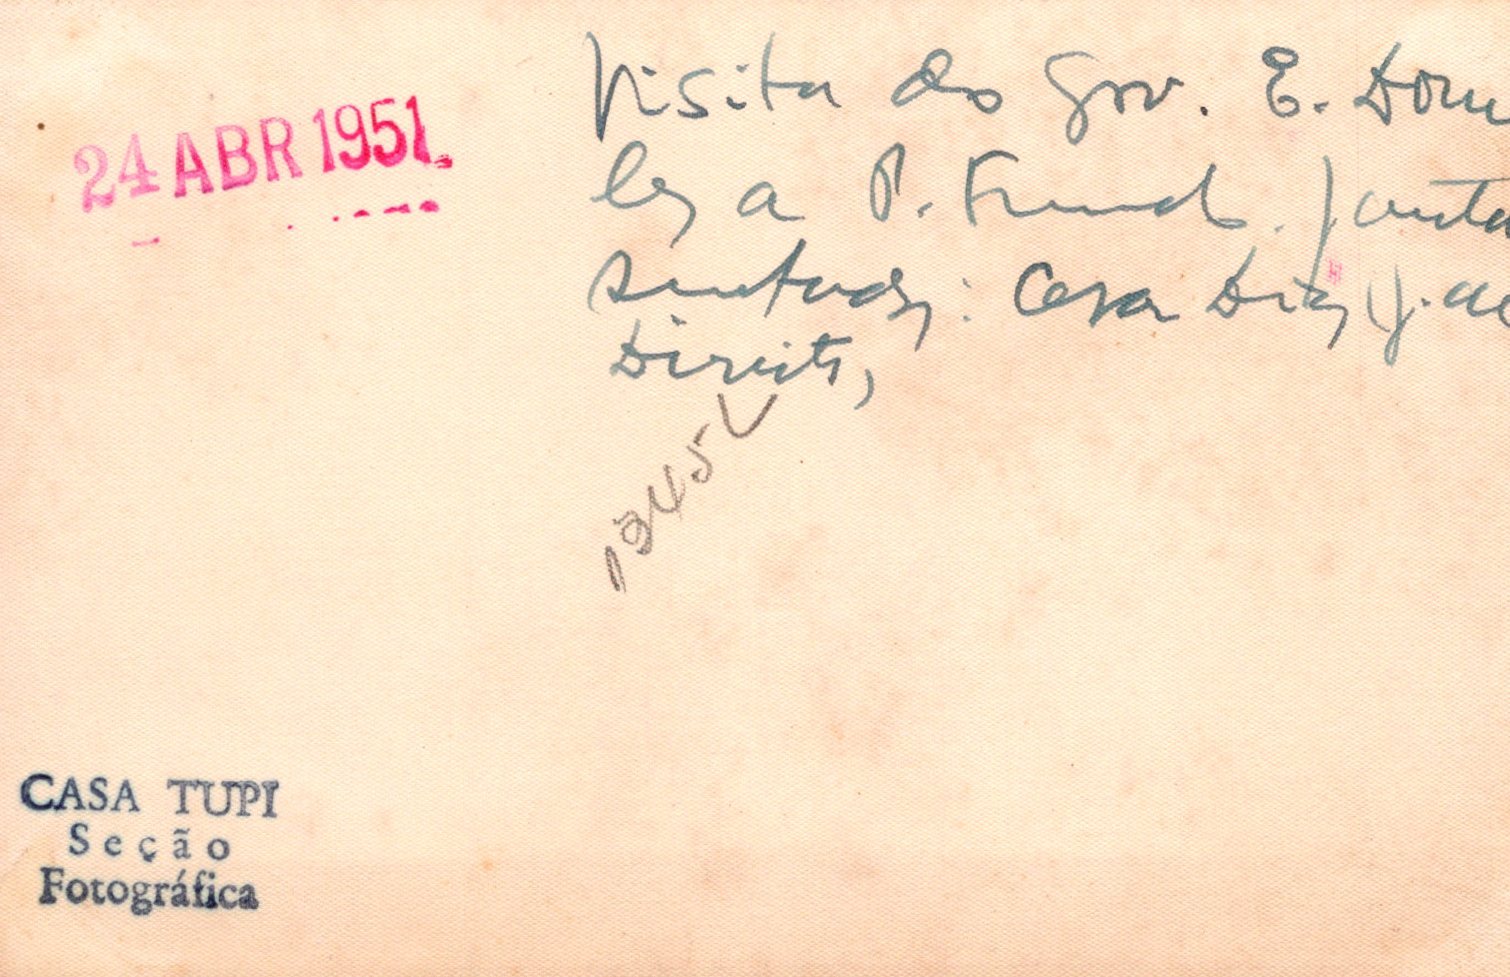 24 ABR 1951
Visita do Gov. E. Dorne
les a P. Fundo. Janta
sentados: Cesar Dias, J. de
Direito,
CASA TUPI
Seção
Fotográfica